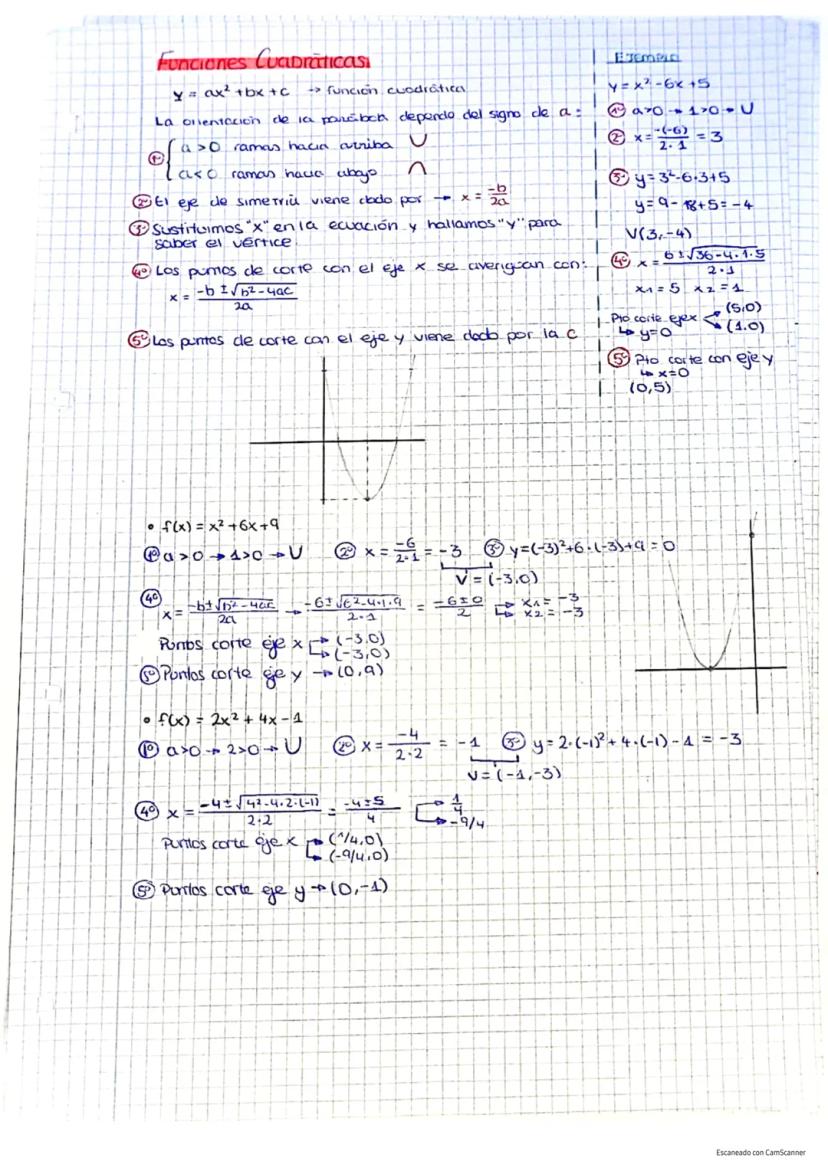 Funciones Cuadráticas
y = ax² + bx + c → función cuadrática
La orientación de la parábola depende del signo de a:
1º { a > 0 ramas hacia arriba ∪
a < 0 ramas hacia abajo ∩
2º El eje de simetría viene dado por → x = -b/2a
3º Sustituimos "x" en la ecuación y hallamos "y" para
saber el vértice
4º Los puntos de corte con el eje x se averiguan con:
x = (-b ± √(b² - 4ac))/2a
5º Los puntos de corte con el eje y viene dado por la c
EJEMPLO
y = x² - 6x + 5
1º a>0 → 1>0 → ∪
2º x = -(-6)/2·1 = 3
3º y = 3² - 6·3 + 5
y = 9 - 18 + 5 = -4
V(3,-4)
4º x = (6 ± √(36 - 4·1·5))/2·1
x1 = 5 x2 = 1
Pto corte eje x (5,0)
↳ y=0 (1,0)
5º Pto corte con eje y
↳ x=0
(0,5)
• f(x) = x² + 6x + 9
1º a>0 → 1>0 → ∪ 2º x = -6/2·1 = -3 3º y = (-3)² + 6·(-3) + 9 = 0
V = (-3,0)
4º x = (-b ± √(b² - 4ac))/2a → (-6 ± √(6² - 4·1·9))/2·1 = (-6 ± 0)/2 → x1 = -3
→ x2 = -3
Puntos corte eje x → (-3,0)
→ (-3,0)
5º Puntos corte eje y → (0,9)
• f(x) = 2x² + 4x - 1
1º a>0 → 2>0 → ∪ 2º x = -4/2·2 = -1 3º y = 2·(-1)² + 4·(-1) - 1 = -3
V = (-1,-3)
4º x = (-4 ± √(4² - 4·2·(-1)))/2·2 = (-4 ± 5)/4 → 1/4
→ -9/4
Puntos corte eje x → (1/4,0)
→ (-9/4,0)
5º Puntos corte eje y → (0,-1)
Escaneado con CamScanner